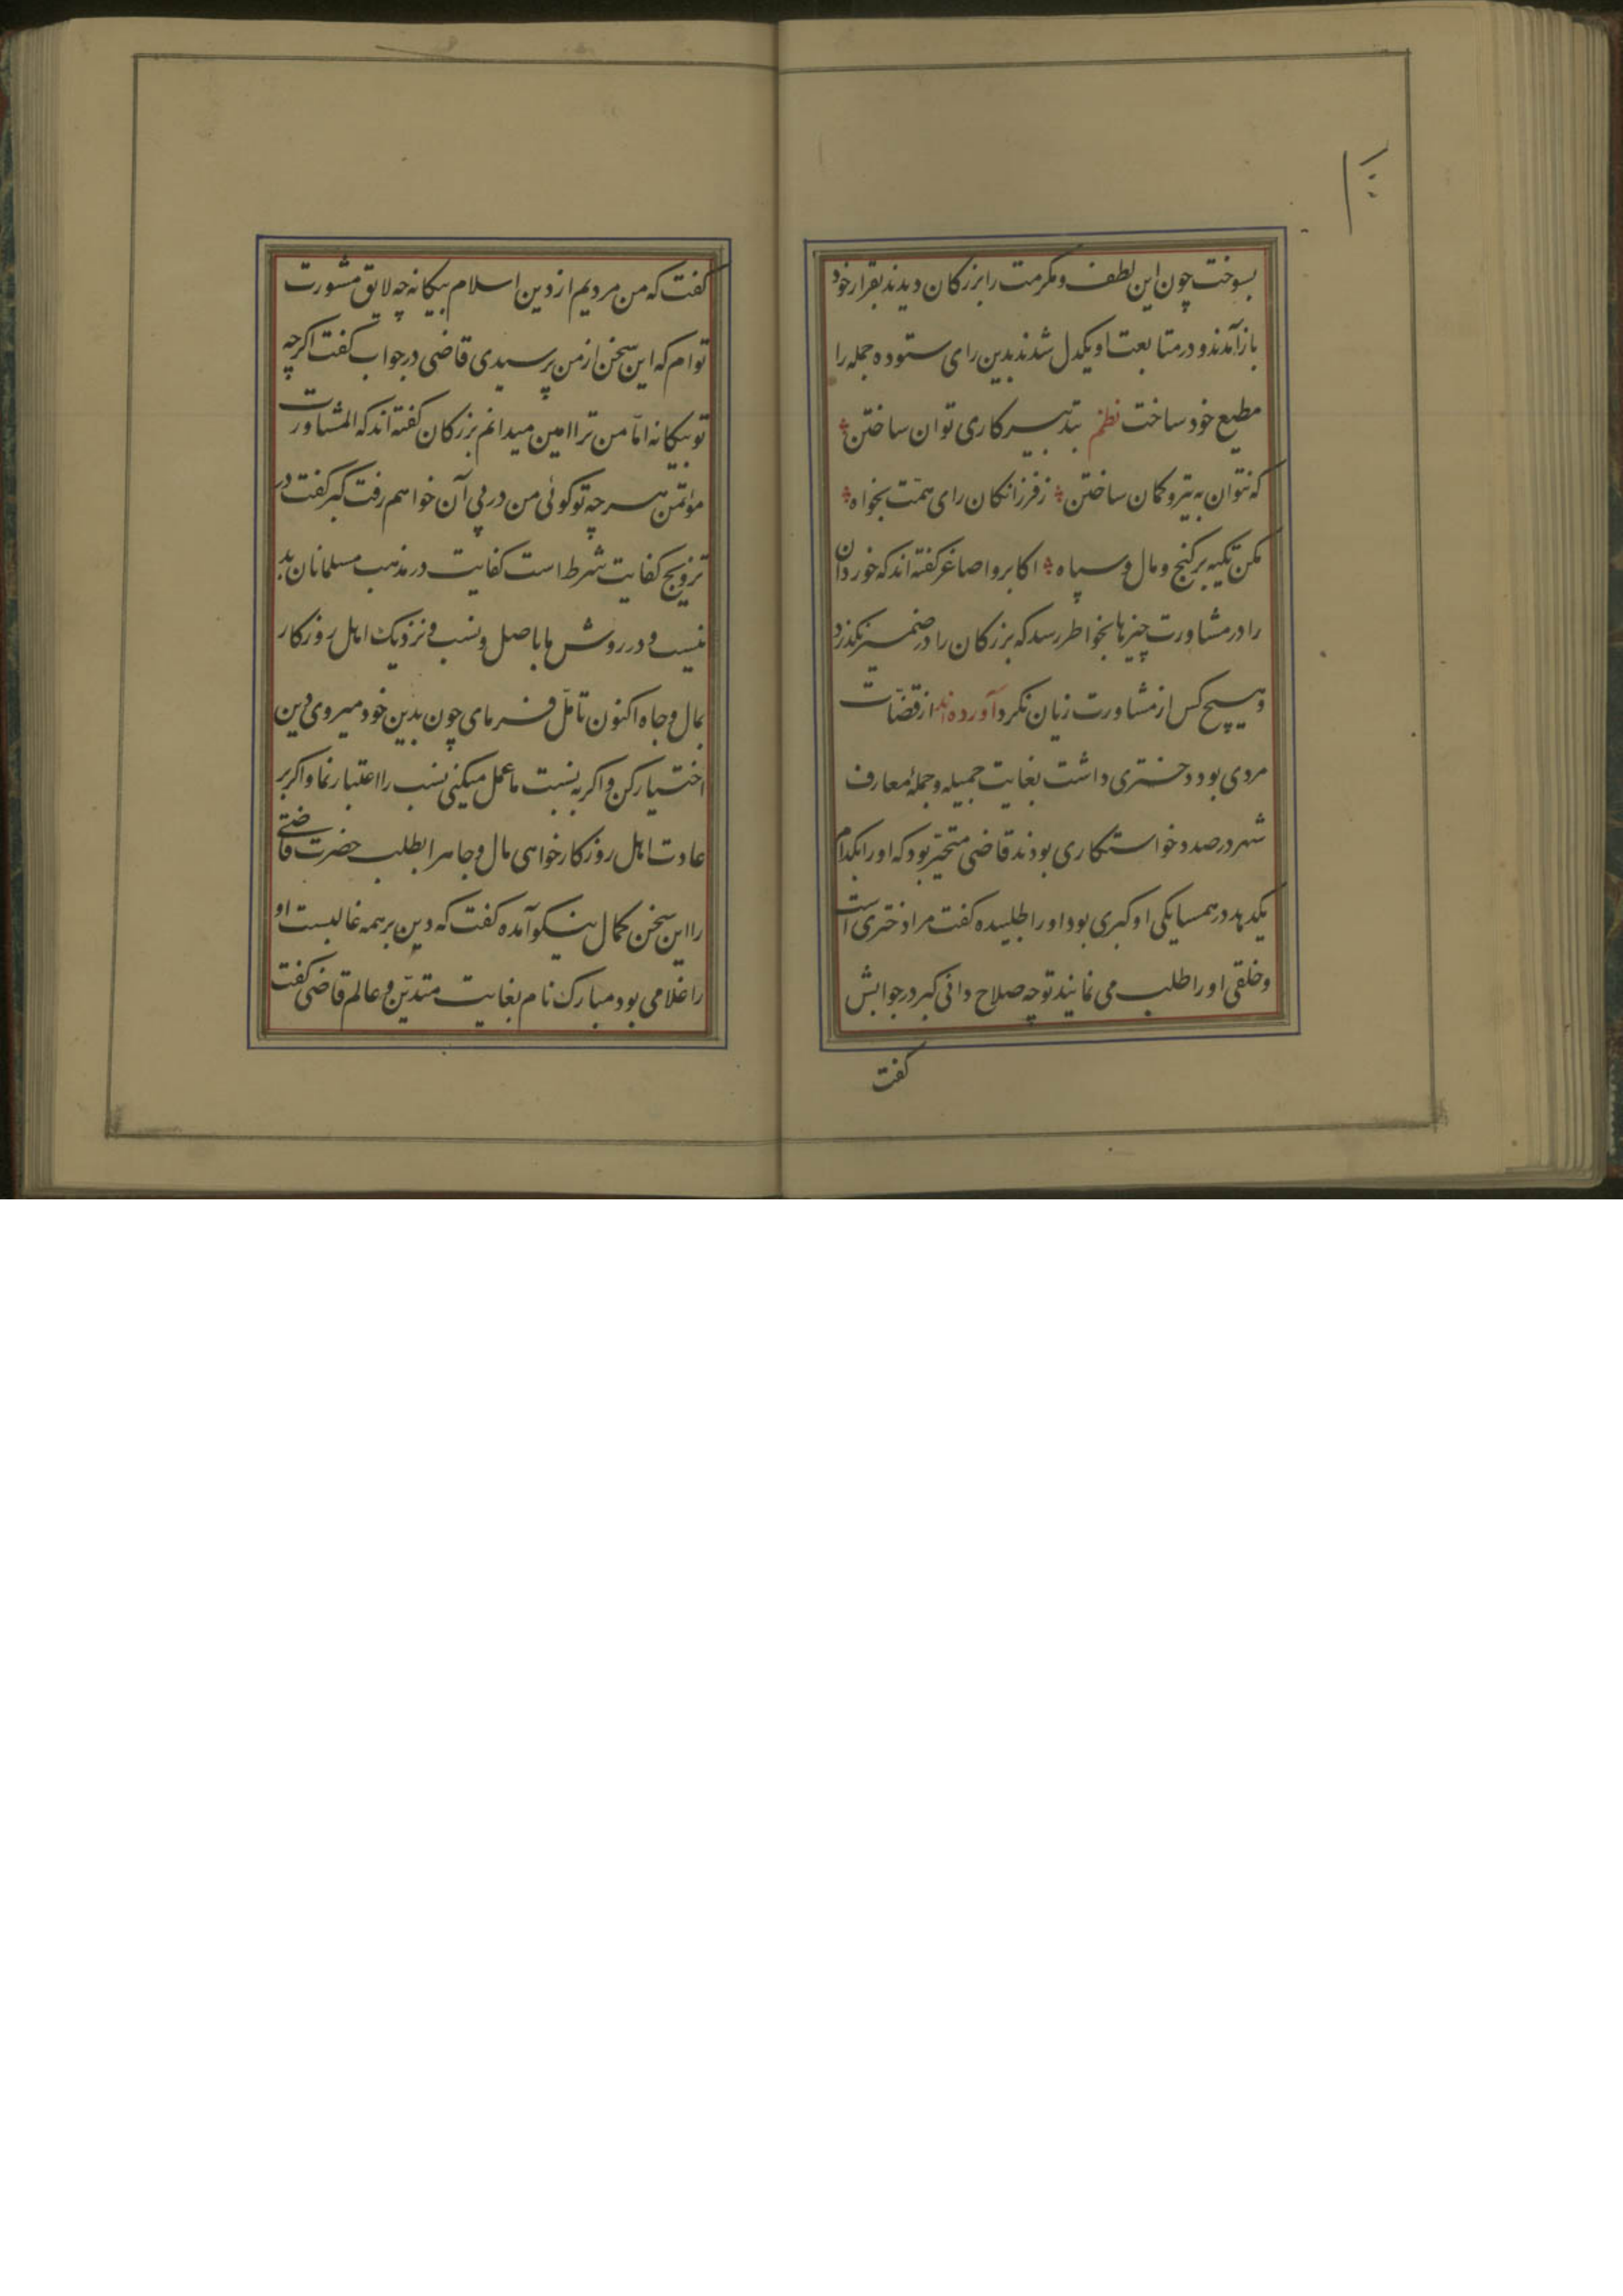 بسوخت چون این لطف و مکرمت را بزرکان دیدند بقرار خود
باز آمدند و در متابعت او یکدل شدند بدین رای ستوده جمله را
مطیع خود ساخت نظم بتدبیر کاری توان ساختن
که نتوان به تیر و کمان ساختن زفرزانکان رای همّت بخواه
مکن تکیه بر کنج و مال و سپاه اکابر و اصاغر کفته اند که خوردان
را در مشاورت چیزها بخواطر رسد که بزرکان را در ضمیر نکذرد
و هیچ کس از مشاورت زیان نکرد آورده اند از قضّات
مردی بود دختری داشت بغایت جمیله و جملهٔ معارف
شهر در صدد خواستکاری بودند قاضی متحیّر بود که او را بکدام
یک دهد در همسایکی او کبری بود او را طلبیده کفت مرا دختری است
و خلقی او را طلب می نمایند تو چه صلاح دانی کبر در جوابش
کفت
کفت که من مردیم از دین اسلام بیکانه چه لایق مشورت
توام که این سخن از من پرسیدی قاضی در جواب کفت اکرچه
تو بیکانه امّا من ترا امین میدانم بزرکان کفته اند که المشاورت
مؤتمن هر چه تو کوئی من در پی آن خواهم رفت کبر کفت در
تزویج کفایت شرط است کفایت در مذهب مسلمانان بد
نیست و در روش ما باصل و نسب و نزدیک اهل روزکار
بمال و جاه اکنون تامّل فرمای چون بدین خود میروی دین
اختیار کن و اکر به نسبت ما عمل میکنی نسب را اعتبار نما و اکر بر
عادت اهل روزکار خواهی مال و جاه را بطلب حضرت قاضی
را این سخن بکمال نیکو آمده کفت که دین بر همه غالبست او
را غلامی بود مبارک نام بغایت متدیّن و عالم قاضی کفت